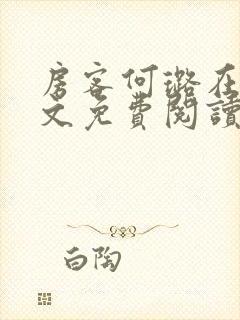 房客何璐在
文免費閱讀
白陶